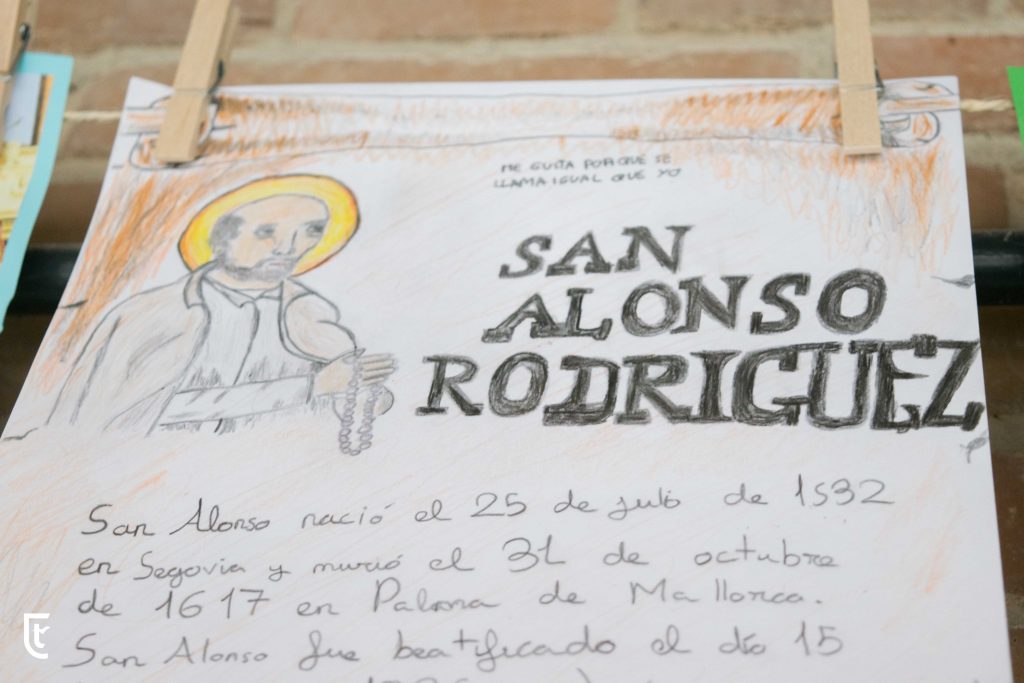 ME GUSTA PORQUE SE
LLAMA IGUAL QUE YO
SAN
ALONSO
RODRIGUEZ
San Alonso nació el 25 de julio de 1532
en Segovia y murió el 31 de octubre
de 1617 en Palma de Mallorca.
San Alonso fue beatificado el día 15